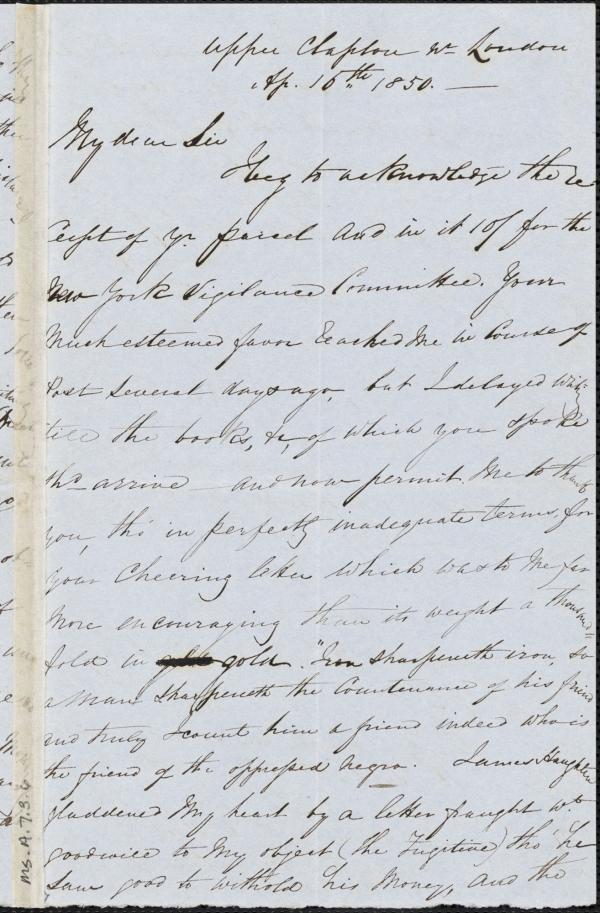 Upper Clapton Nr. London
Ap. 16th 1850. —
My dear Sir
I beg to acknowledge the re-
ceipt of yr. parcel and in it 10/ for the
New York Vigilance Committee. Your
Much esteemed favor reached Me in Course of
Post several days ago, but I delayed writing
till the books, &c, of which you spoke
shd. arrive — and now permit Me to thank
you, tho' in perfectly inadequate terms, for
your Cheering letter which was to Me far
More encouraging than its weight a thousand=
fold in gold. "Iron sharpeneth iron, so
a man sharpeneth the Countenance of his friend
and truly I count him a friend indeed who is
the friend of the oppressed negro. James Haughton
gladdened My heart by a letter fraught wt.
goodwill to My object (the Fugitive) tho' he
saw good to withold his Money, and the
Ms. A.7.3.6